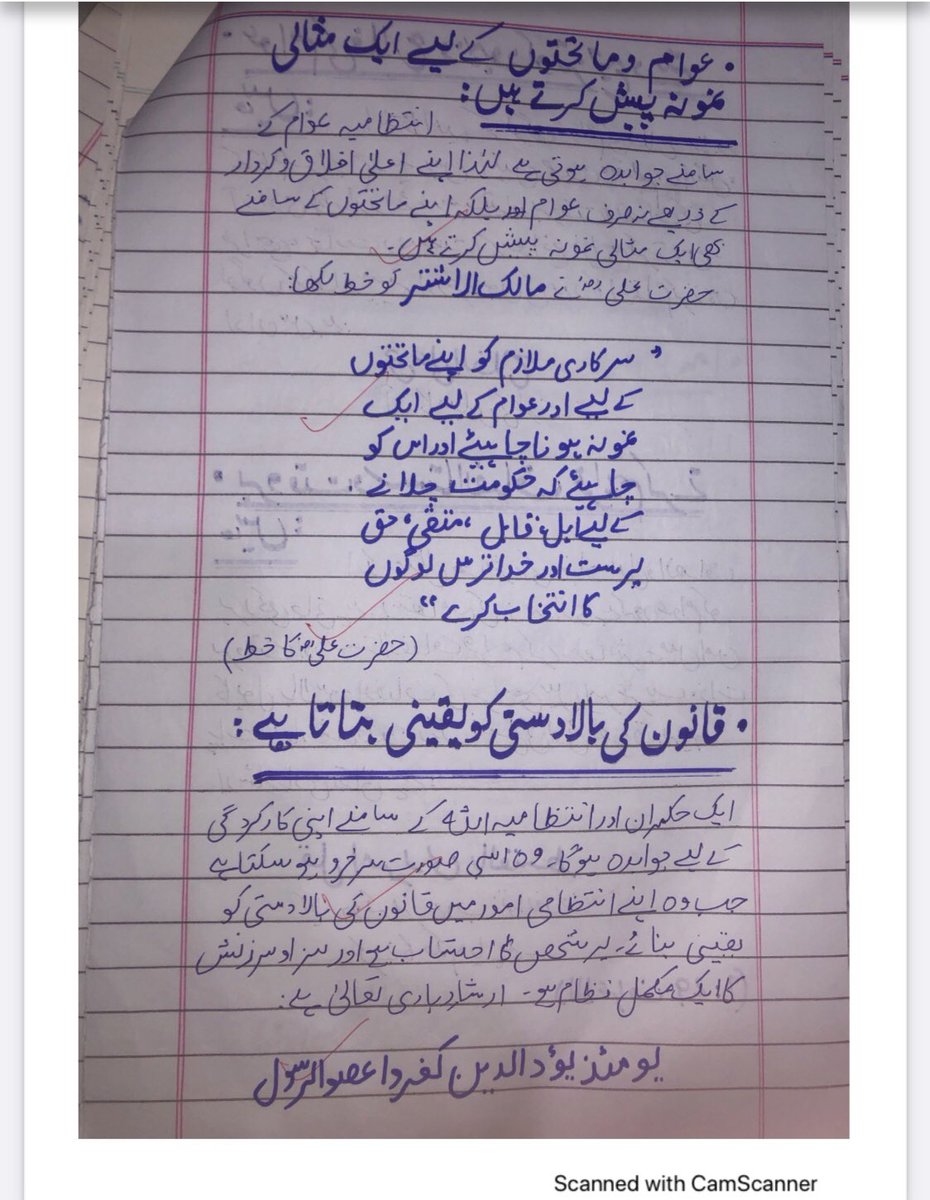 • عوام و ماتحتوں کے لیے ایک مثالی
نمونہ پیش کرتے ہیں:
انتظامیہ عوام کے
سامنے جوابدہ ہوتی ہے لہٰذا اپنے اعلیٰ اخلاق و کردار
کے ذریعے نہ صرف عوام اور بلکہ اپنے ماتحتوں کے سامنے
بھی ایک مثالی نمونہ پیش کرتے ہیں۔
حضرت علیؓ نے مالک الاشتر کو خط لکھا:
" سرکاری ملازم کو اپنے ماتحتوں
کے لیے اور عوام کے لیے ایک
نمونہ ہونا چاہیئے اور اس کو
چاہیئے کہ حکومت چلانے
کے لیے اہل، قابل، متقی، حق
پرست اور خدا ترس لوگوں
کا انتخاب کرے"
(حضرت علیؓ کا خط)
• قانون کی بالادستی کو یقینی بتاتا ہے:
ایک حکمران اور انتظامیہ اللہ کے سامنے اپنی کارکردگی
کے لیے جوابدہ ہوگا۔ وہ اسی صورت سرخرو ہو سکتا ہے
جب وہ اپنے انتظامی امور میں قانون کی بالادستی کو
یقینی بنائے۔ ہر شخص کا احتساب ہو اور سزا و سرزنش
کا ایک مکمل نظام ہو۔ ارشاد باری تعالیٰ ہے:
یومئذ یؤد الذین کفروا عصو الرسول
Scanned with CamScanner